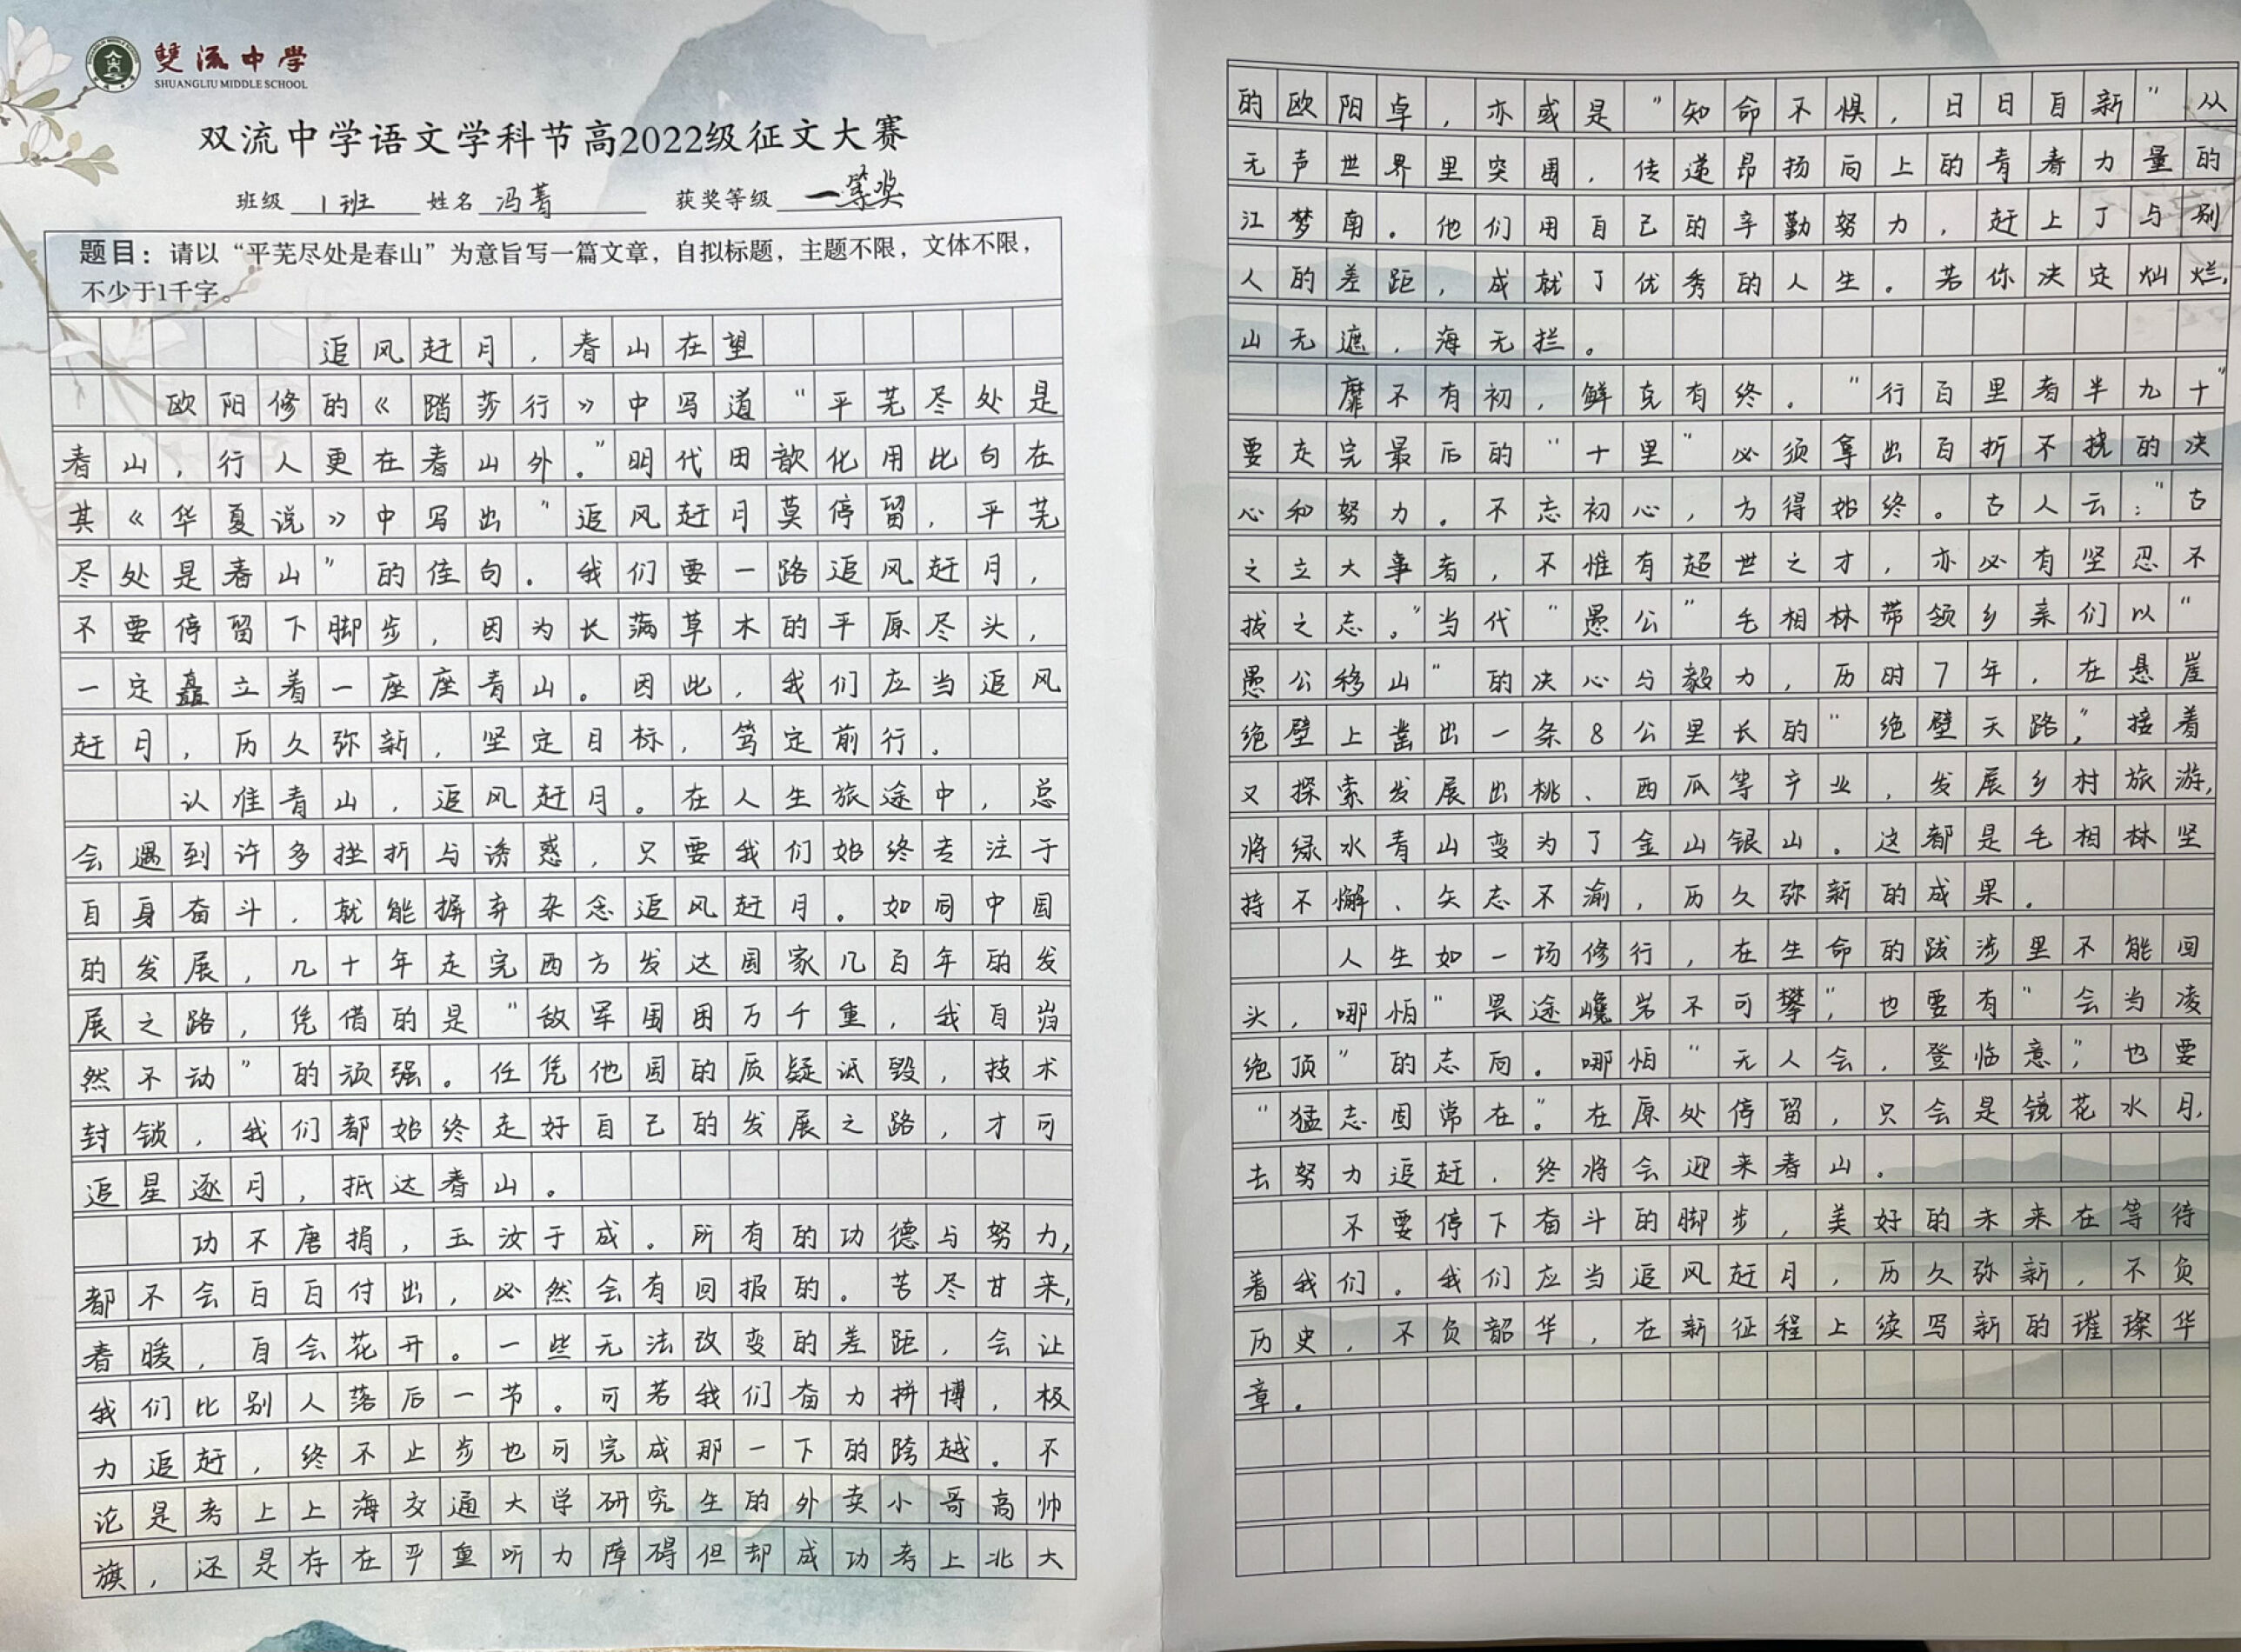 雙流中学
SHUANGLIU MIDDLE SCHOOL
双流中学语文学科节高2022级征文大赛
班级 1班 姓名 冯菁 获奖等级 一等奖
题目：请以“平芜尽处是春山”为意旨写一篇文章，自拟标题，主题不限，文体不限，
不少于1千字。
追风赶月，春山在望
欧阳修的《踏莎行》中写道“平芜尽处是
春山，行人更在春山外。”明代田歆化用此句在
其《华夏说》中写出“追风赶月莫停留，平芜
尽处是春山”的佳句。我们要一路追风赶月，
不要停留下脚步，因为长满草木的平原尽头，
一定矗立着一座座青山。因此，我们应当追风
赶月，历久弥新，坚定目标，笃定前行。
认准青山，追风赶月。在人生旅途中，总
会遇到许多挫折与诱惑，只要我们始终专注于
自身奋斗，就能摒弃杂念追风赶月。如同中国
的发展，几十年走完西方发达国家几百年的发
展之路，凭借的是“敌军围困万千重，我自岿
然不动”的顽强。任凭他国的质疑诋毁，技术
封锁，我们都始终走好自己的发展之路，才可
追星逐月，抵达春山。
功不唐捐，玉汝于成。所有的功德与努力，
都不会白白付出，必然会有回报的。苦尽甘来，
春暖，自会花开。一些无法改变的差距，会让
我们比别人落后一节。可若我们奋力拼博，极
力追赶，终不止步也可完成那一下的跨越。不
论是考上上海交通大学研究生的外卖小哥高帅
旗，还是存在严重听力障碍但却成功考上北大
的欧阳卓，亦或是“知命不惧，日日自新”从
无声世界里突围，传递昂扬向上的青春力量的
江梦南。他们用自己的辛勤努力，赶上了与别
人的差距，成就了优秀的人生。若你决定灿烂，
山无遮，海无拦。
靡不有初，鲜克有终。“行百里者半九十”
要走完最后的“十里”必须拿出百折不挠的决
心和努力。不忘初心，方得始终。古人云：“古
之立大事者，不惟有超世之才，亦必有坚忍不
拔之志。”当代“愚公”毛相林带领乡亲们以“
愚公移山”的决心与毅力，历时7年，在悬崖
绝壁上凿出一条8公里长的“绝壁天路”，接着
又探索发展出桃、西瓜等产业，发展乡村旅游，
将绿水青山变为了金山银山。这都是毛相林坚
持不懈、矢志不渝，历久弥新的成果。
人生如一场修行，在生命的跋涉里不能回
头，哪怕“畏途巉岩不可攀”，也要有“会当凌
绝顶”的志向。哪怕“无人会，登临意”，也要
“猛志固常在”。在原处停留，只会是镜花水月，
去努力追赶，终将会迎来春山。
不要停下奋斗的脚步，美好的未来在等待
着我们。我们应当追风赶月，历久弥新，不负
历史，不负韶华，在新征程上续写新的璀璨华
章。